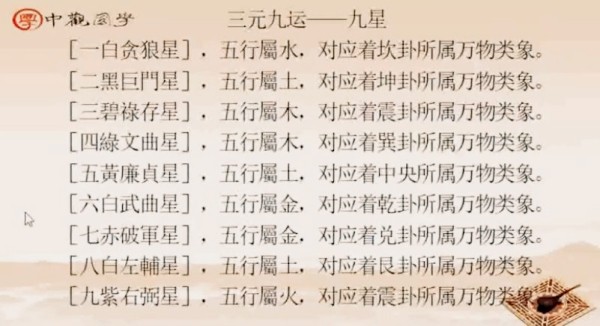 中觀國學
三元九运——九星
[一白贪狼星]，五行屬水，对应着坎卦所属万物类象。
[二黑巨門星]，五行屬土，对应着坤卦所属万物类象。
[三碧祿存星]，五行屬木，对应着震卦所属万物类象。
[四綠文曲星]，五行屬木，对应着巽卦所属万物类象。
[五黃廉貞星]，五行屬土，对应着中央所属万物类象。
[六白武曲星]，五行屬金，对应着乾卦所属万物类象。
[七赤破軍星]，五行屬金，对应着兑卦所属万物类象。
[八白左輔星]，五行屬土，对应着艮卦所属万物类象。
[九紫右弼星]，五行屬火，对应着震卦所属万物类象。